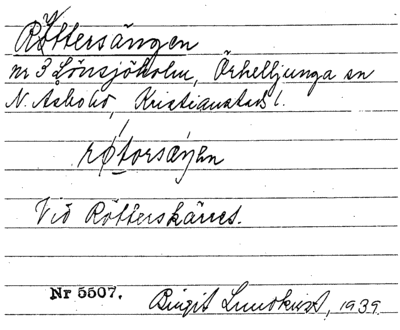 Röttersängen
nr 3 Lönsjöholm, Örkelljunga sn
N. Åsbo hd, Kristianstads l.
røtorsæŋen
Vid Rötterskärret.
Nr 5507. Birgit Lundkvist, 1939.